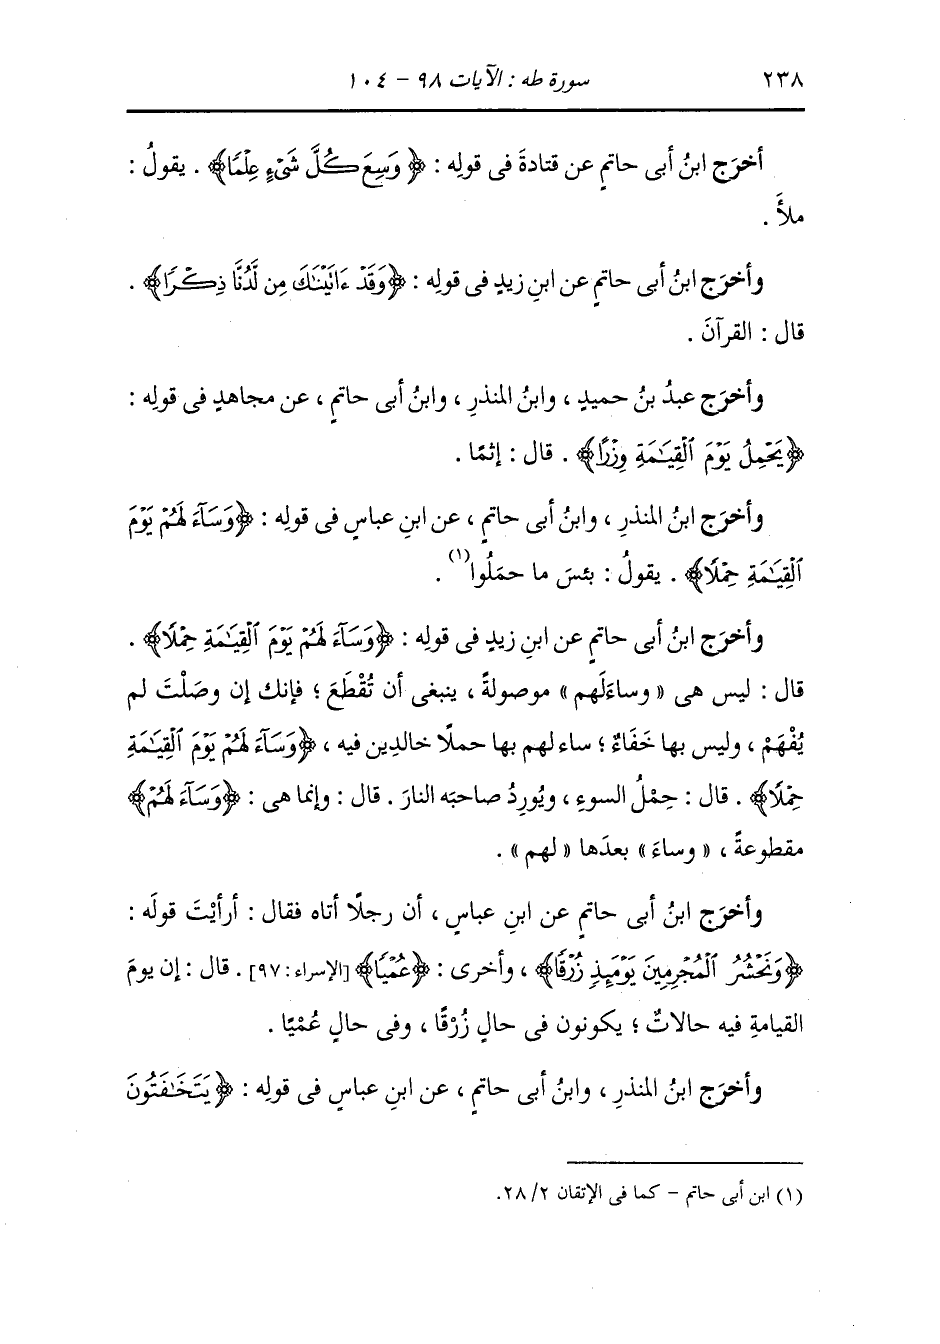 ٢٣٨ سورة طه : الآيات ٩٨ - ١٠٤
أخرَج ابنُ أبى حاتمٍ عن قتادةَ فى قولِه : ﴿وَسِعَ كُلَّ شَىْءٍ عِلْمًا﴾ . يقولُ :
ملأَ .
وأخرَج ابنُ أبى حاتمٍ عن ابنِ زيدٍ فى قولِه : ﴿وَقَدْ ءَاتَيْنَٰكَ مِن لَّدُنَّا ذِكْرًا﴾ .
قال : القرآنَ .
وأخرَج عبدُ بنُ حميدٍ ، وابنُ المنذرِ ، وابنُ أبى حاتمٍ ، عن مجاهدٍ فى قولِه :
﴿يَحْمِلُ يَوْمَ ٱلْقِيَٰمَةِ وِزْرًا﴾ . قال : إثمًا .
وأخرَج ابنُ المنذرِ ، وابنُ أبى حاتمٍ ، عن ابنِ عباسٍ فى قولِه : ﴿وَسَآءَ لَهُمْ يَوْمَ
ٱلْقِيَٰمَةِ حِمْلًا﴾ . يقولُ : بئسَ ما حمَلُوا(١) .
وأخرَج ابنُ أبى حاتمٍ عن ابنِ زيدٍ فى قولِه : ﴿وَسَآءَ لَهُمْ يَوْمَ ٱلْقِيَٰمَةِ حِمْلًا﴾ .
قال : ليس هى « وساءَلَهم » موصولةً ، ينبغى أن تُقْطَعَ ؛ فإنك إن وصَلْتَ لم
يُفْهَمْ ، وليس بها خَفَاءٌ ؛ ساء لهم بها حملًا خالدِين فيه ، ﴿وَسَآءَ لَهُمْ يَوْمَ ٱلْقِيَٰمَةِ
حِمْلًا﴾ . قال : حِمْلُ السوءِ ، ويُورِدُ صاحبَه النارَ . قال : وإنما هى : ﴿وَسَآءَ لَهُمْ﴾
مقطوعةً ، « وساءَ » بعدَها « لهم » .
وأخرَج ابنُ أبى حاتمٍ عن ابنِ عباسٍ ، أن رجلًا أتاه فقال : أرأيْتَ قولَه :
﴿وَنَحْشُرُ ٱلْمُجْرِمِينَ يَوْمَئِذٍ زُرْقًا﴾ ، وأخرى : ﴿عُمْيًا﴾ [الإسراء: ٩٧] . قال : إن يومَ
القيامةِ فيه حالاتٌ ؛ يكونون فى حالٍ زُرْقًا ، وفى حالٍ عُمْيًا .
وأخرَج ابنُ المنذرِ ، وابنُ أبى حاتمٍ ، عن ابنِ عباسٍ فى قولِه : ﴿يَتَخَٰفَتُونَ
(١) ابن أبى حاتم - كما فى الإتقان ٢/ ٢٨.